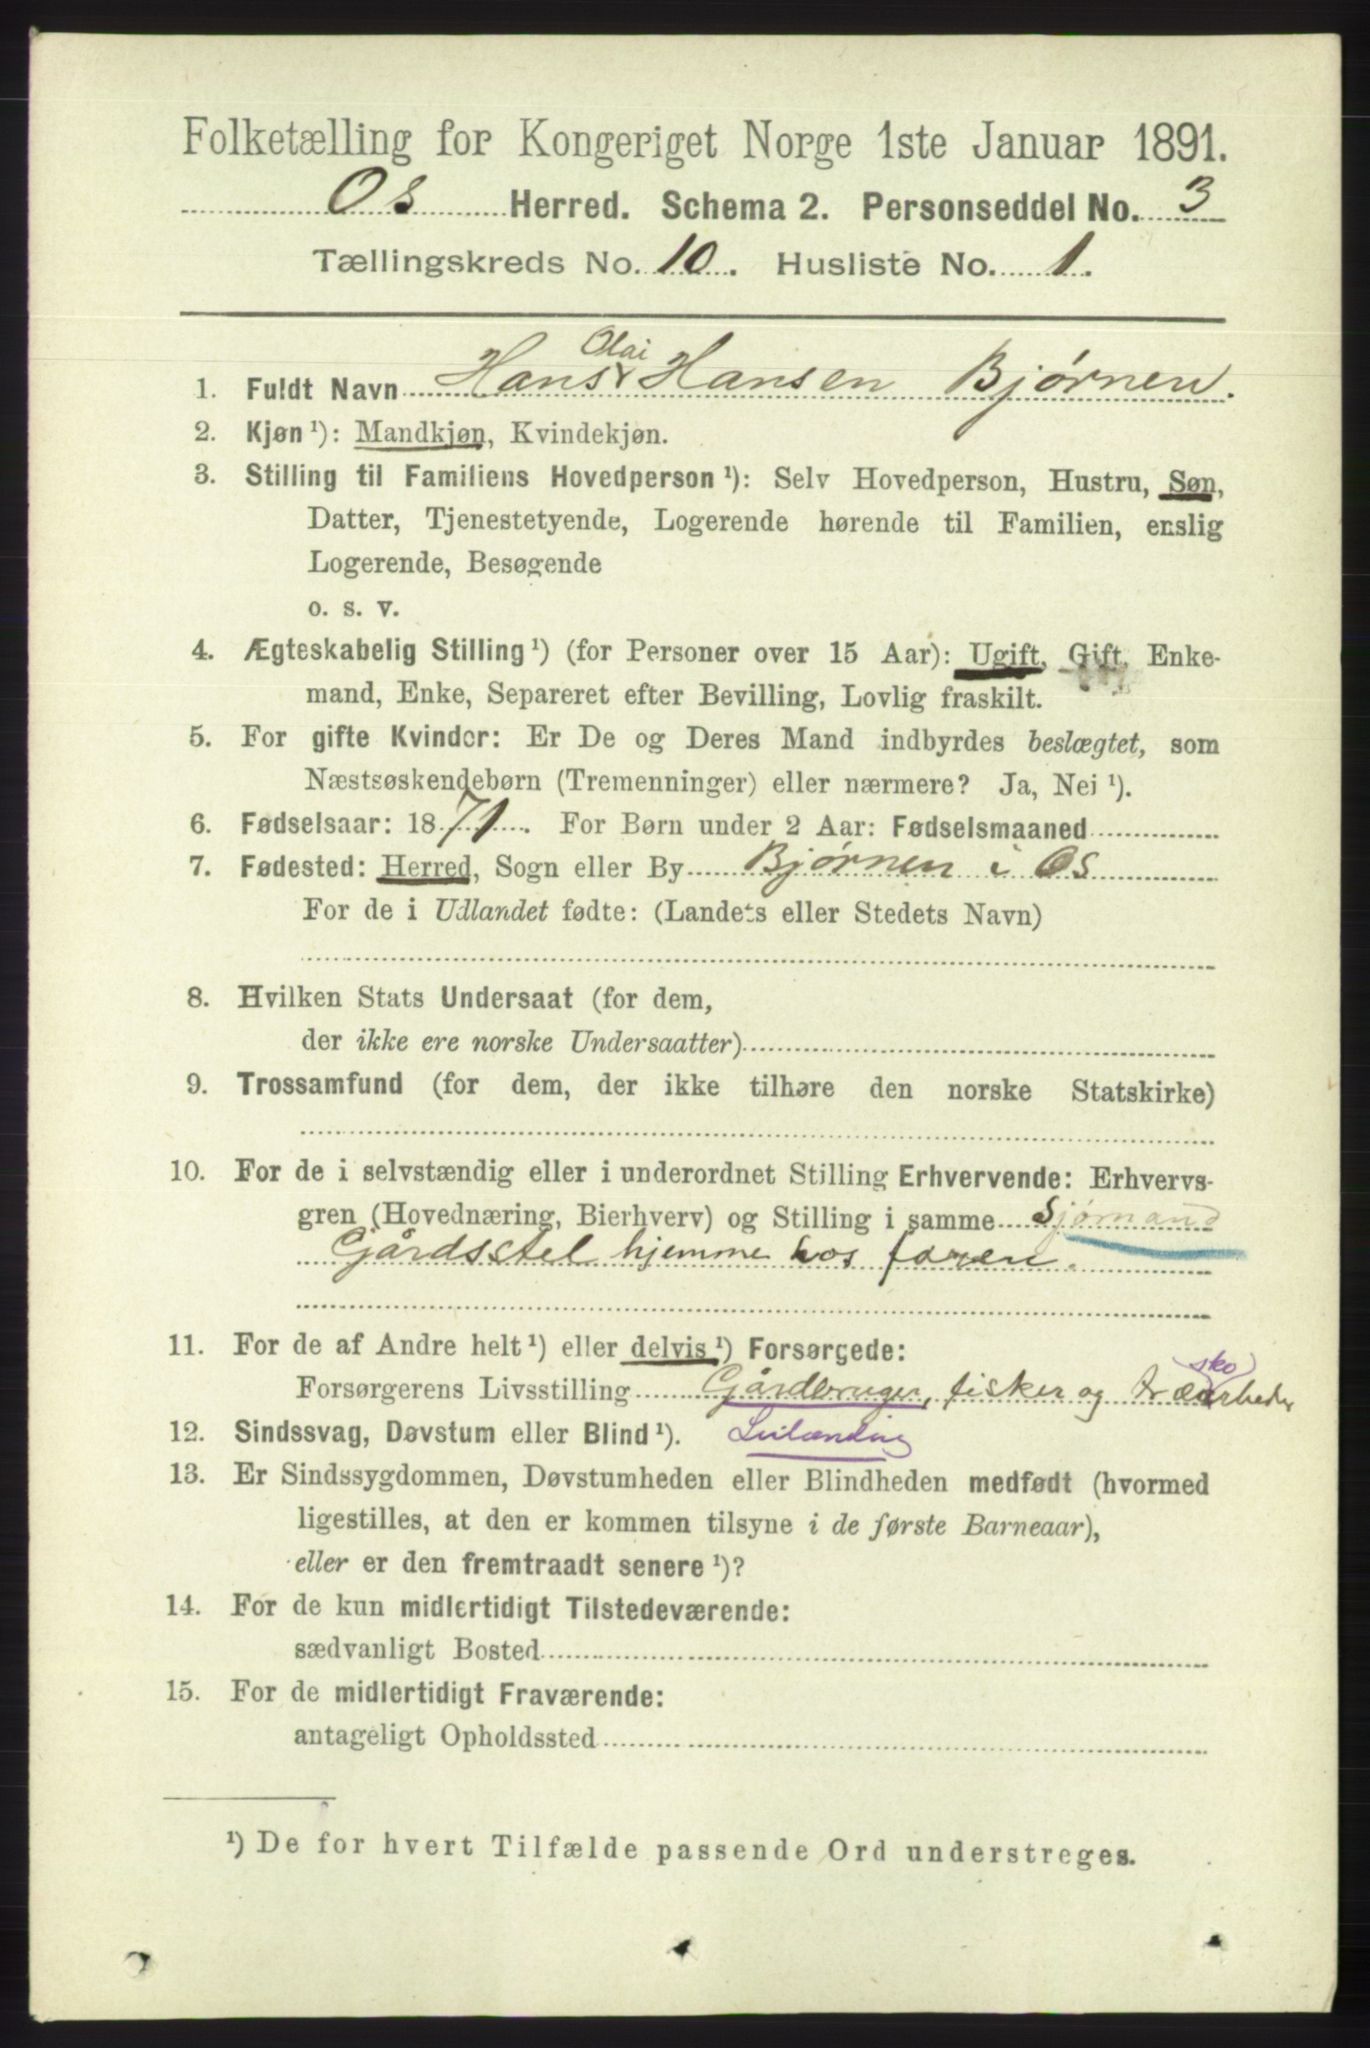 Folketælling for Kongeriget Norge 1ste Januar 1891.
Os Herred. Schema 2. Personseddel No. 3
Tællingskreds No. 10. Husliste No. 1.
Olai
1. Fuldt Navn Hans Hansen Bjørnen.
2. Kjøn ¹): Mandkjøn, Kvindekjøn.
3. Stilling til Familiens Hovedperson ¹): Selv Hovedperson, Hustru, Søn,
Datter, Tjenestetyende, Logerende hørende til Familien, enslig
Logerende, Besøgende
o. s. v.
4. Ægteskabelig Stilling ¹) (for Personer over 15 Aar): Ugift, Gift, Enke-
mand, Enke, Separeret efter Bevilling, Lovlig fraskilt.
5. For gifte Kvinder: Er De og Deres Mand indbyrdes beslægtet, som
Næstsøskendebørn (Tremenninger) eller nærmere? Ja, Nei ¹).
6. Fødselsaar: 1871. For Børn under 2 Aar: Fødselsmaaned
7. Fødested: Herred, Sogn eller By Bjørnen i Os
For de i Udlandet fødte: (Landets eller Stedets Navn)
8. Hvilken Stats Undersaat (for dem,
der ikke ere norske Undersaatter)
9. Trossamfund (for dem, der ikke tilhøre den norske Statskirke)
10. For de i selvstændig eller i underordnet Stilling Erhvervende: Erhvervs-
gren (Hovednæring, Bierhverv) og Stilling i samme Sjømand
Gårdsstel hjemme hos faren.
11. For de af Andre helt ¹) eller delvis ¹) Forsørgede:
sko
Forsørgerens Livsstilling Gårdbruger, fisker og træarbeider
12. Sindssvag, Døvstum eller Blind ¹). Leilænding
13. Er Sindssygdommen, Døvstumheden eller Blindheden medfødt (hvormed
ligestilles, at den er kommen tilsyne i de første Barneaar),
eller er den fremtraadt senere ¹)?
14. For de kun midlertidigt Tilstedeværende:
sædvanligt Bosted
15. For de midlertidigt Fraværende:
antageligt Opholdssted
¹) De for hvert Tilfælde passende Ord understreges.